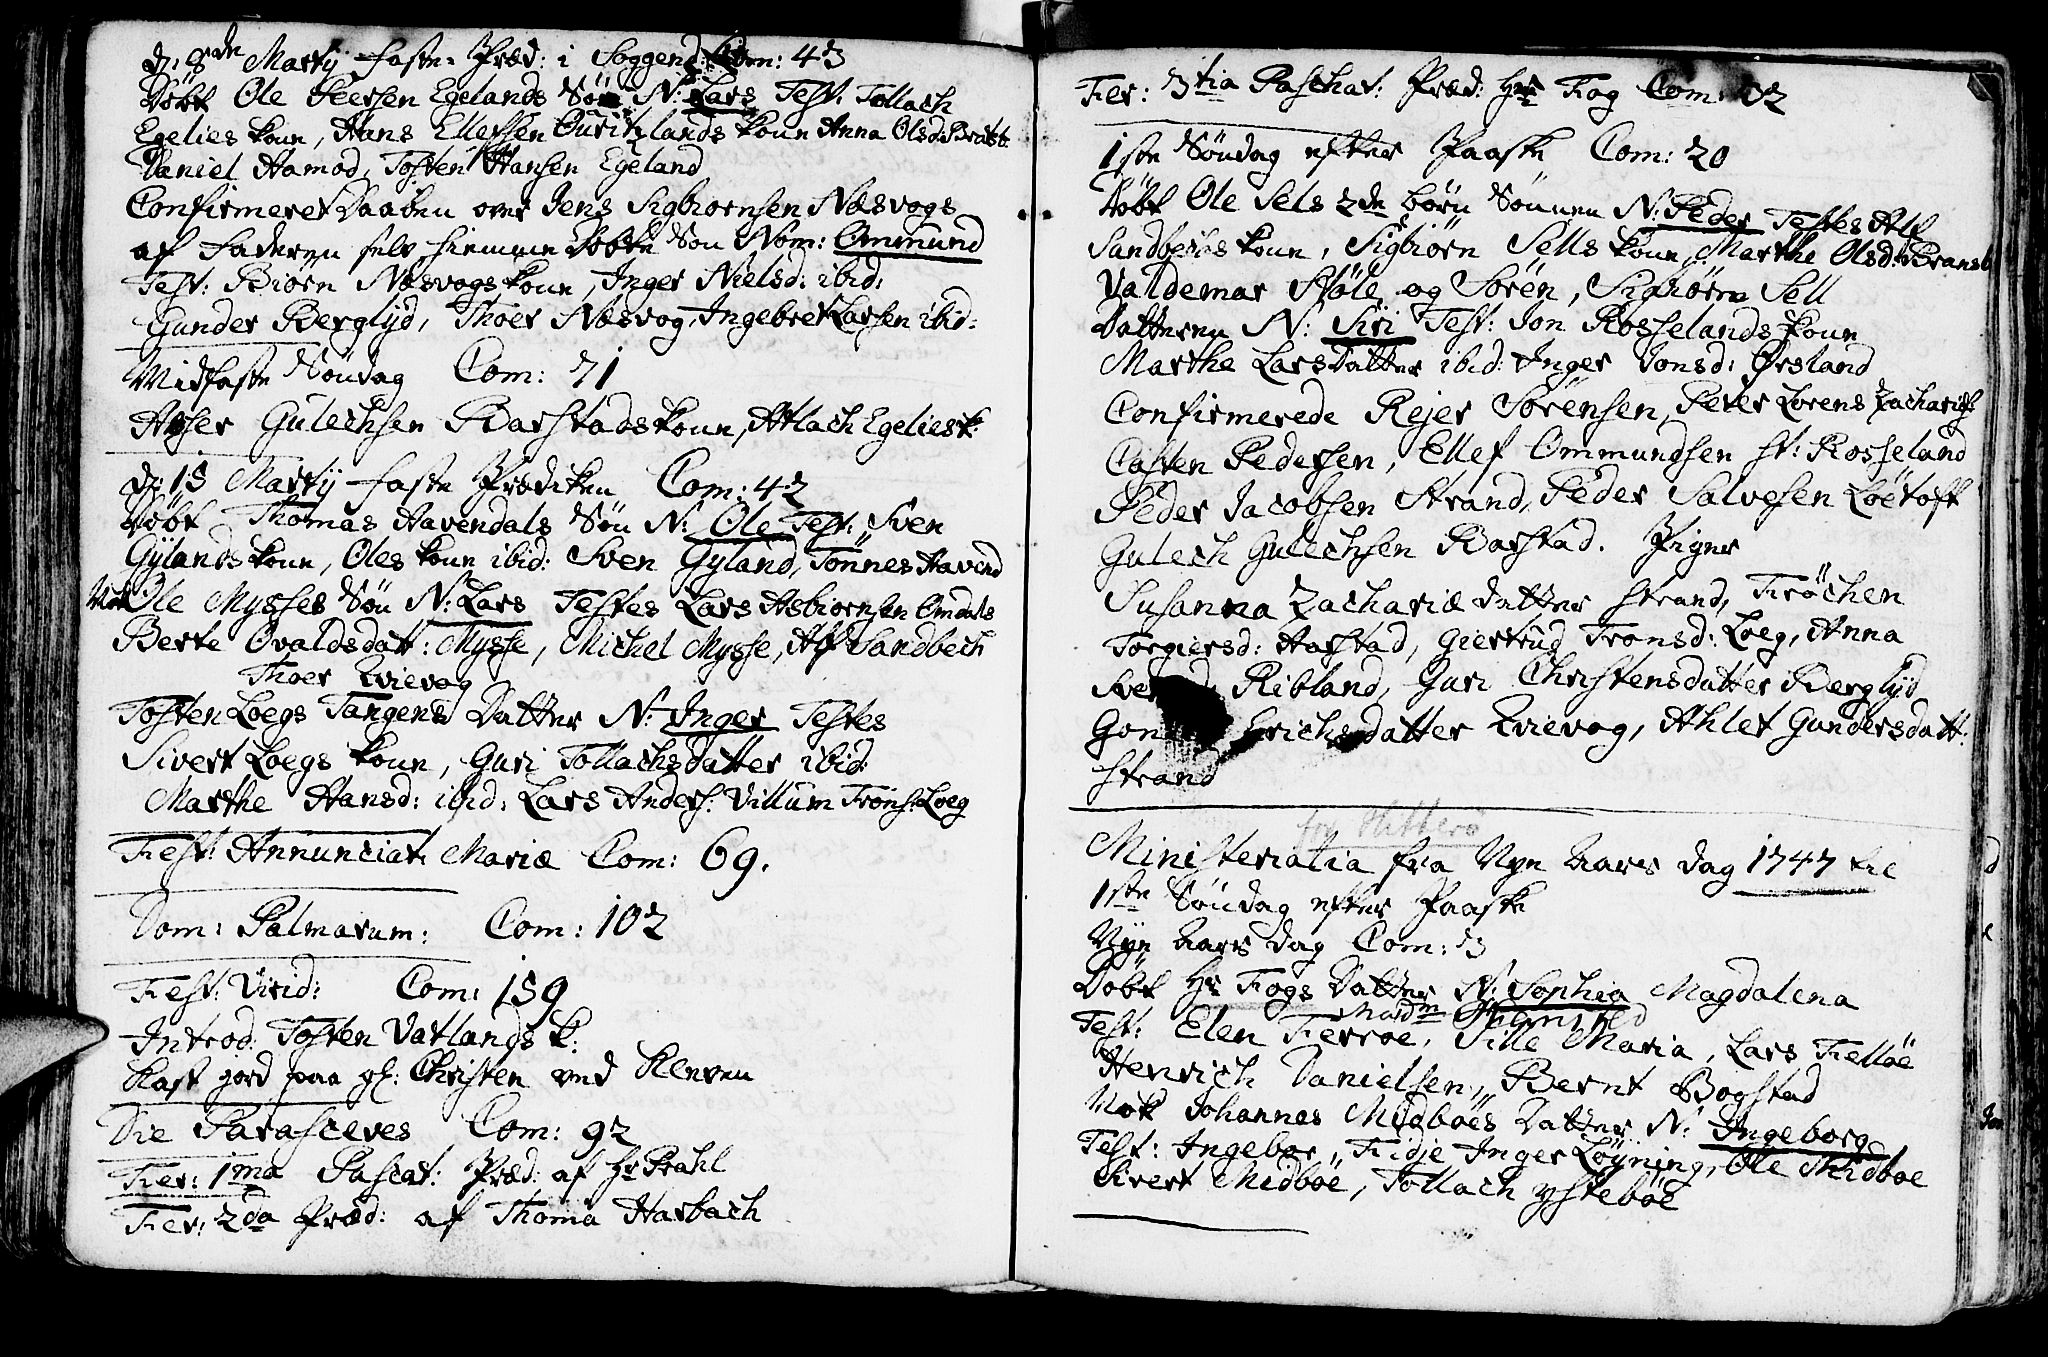 d: 8de Martij faste-Præd: i Soggend: Com: 43
Döbt Ole Peersen Egelands Sön N: Lars Test: Tollach
Egelies kone, Hans Ellefsen kone Anna Olsd:
Daniel Hamod, Tosten Hansen Egeland
Confirmeret Daaben over Jens Sigbiornsen Næsvogs
af faderen selv hiemme Döbte Son Nom: Ommund
Test: Biörn Næsvogs kone, Inger Nielsd: ibid:
Gunder Berglyd, Thoer Næsvog, Ingebret Larsen ibid:
Midfaste Söndag Com: 71
Asser Gulechsen Barstads kone, Atlach Egelies k:
d: 15 Martij faste Prædiken Com: 42
Döbt Thomas Havendals Sön N: Ole Test: Sven
Gÿlands kone, Oles kone ibid: Sven Gyland, Tönnes Havend
Nok Ole Mysses Sön N: Lars Testes Lars Asbiornsen Omdals
Berte Ovaldsdatt: Mysse, Michel Mysse, Alf Sandbech
Thoer Evievog
Tosten Loegs Tangens Datter N: Inger Testes
Sivert Loegs kone, Guri Tollachsdatter ibid:
Marthe Hansd: ibid: Lars Anders: Villum Trons: Loeg
Fest: Annunciat: Mariæ Com: 69.
Dom: Palmarum: Com: 102
Fest: Virid: Com: 159
Introd: Tosten Vatlands k:
Kast jord paa gl: Christen ved
Die Parasceves Com: 92
Fer: 1ma Pascat: Præd: af Hr Prahl
Fer: 2da Præd: af Thoma Harbach
Fer: 3tia Paschat: Præd: Hr Fog Com: 32
1ste Söndag efter Paaske Com: 20
Döbt Ole Sels 2de börn Sönnen N: Peder Testes Alf
Sandbechs kone, Sigbiörn Sells kone, Marthe Olsd:
Valdemar Stöle og Sören, Sigbiörn Sell
Datteren N: Siri Test: Jon Rosselands kone
Marthe Larsdatter ibid: Inger Jonsd: Örsland
Confirmerede Rejer Sörensen, Peter Lorens Zacharies:
Casten Pedersen, Ellef Ommundsen st: Rosseland
Peder Jacobsen Strand, Peder Salvesen Löetoft
Gulech Gulechsen Barstad. Piger
Susanna Zachariæ datter Strand, Tröchen
Torgiersd: Harstad, Giertrud Tronsd: Loeg, Anna
Ribland, Guri Christensdatter Berglyd
Erichsdatter Evievog, Ahlet Gundersdatt:
Strand
for Hitterö
Ministerialia fra Nye Aars dag 1747 til
1ste Söndag efter Paaske
Nye Aars dag Com: 3
Döbt Hr Fogs Datter N: Sophia Magdalena
Madm
Test: Elen Fierroe, Sille Maria, Lars Felloe
Henrich Danielsen, Bernt Bogstad
Nok Johannes Midboes Datter N: Ingeborg
Test: Ingebor, Fidje Inger Löyning, Ole Midboe
Sivert Midböe, Tollach ysteböe